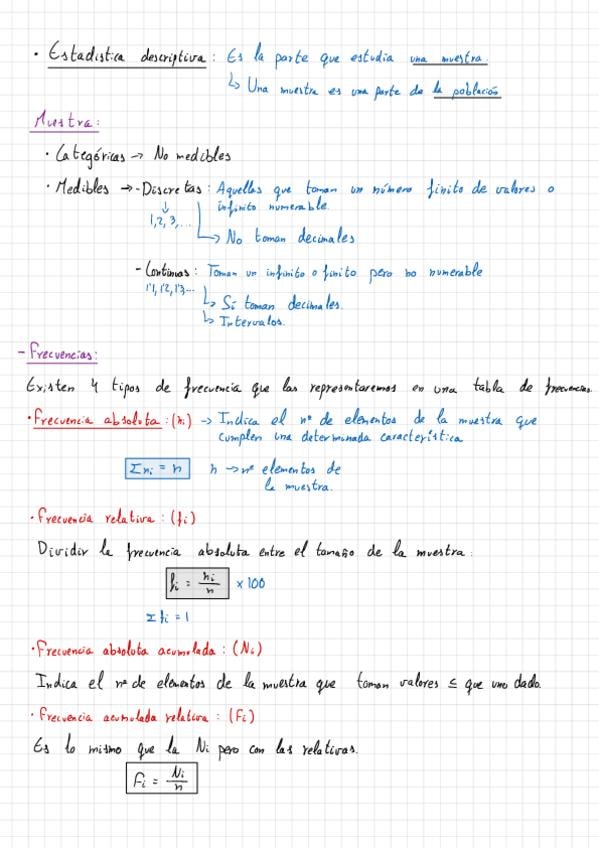 · Estadística descriptiva : Es la parte que estudia una muestra.
↳ Una muestra es una parte de la población
Muestra:
· Categóricas → No medibles
· Medibles → - Discretas : Aquellas que toman un número finito de valores o
infinito numerable.
↓
1, 2, 3, ...
↳ No toman decimales
- Continuas : Toman un infinito o finito pero no numerable
1'1, 1'2, 1'3...
↳ Sí toman decimales.
↳ Intervalos.
- Frecuencias:
Existen 4 tipos de frecuencia que las representaremos en una tabla de frecuencias.
· Frecuencia absoluta : (ni) → Indica el nº de elementos de la muestra que
cumplen una determinada característica
Σni = n n → nº elementos de
la muestra.
· Frecuencia relativa : (fi)
Dividir la frecuencia absoluta entre el tamaño de la muestra :
fi = ni/n × 100
Σfi = 1
· Frecuencia absoluta acumulada : (Ni)
Indica el nº de elementos de la muestra que toman valores ≤ que uno dado.
· Frecuencia acumulada relativa : (Fi)
Es lo mismo que la Ni pero con las relativas.
Fi = Ni/n